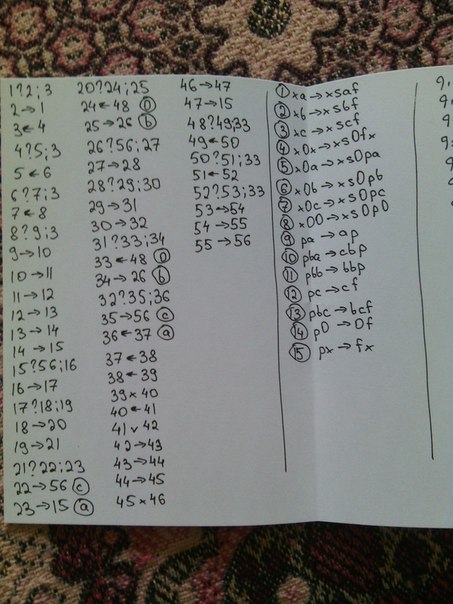 1?2;3
2→1
3←4
4?5;3
5←6
6?7;3
7←8
8?9;3
9→10
10→11
11→12
12→13
13→14
14→15
15?56;16
16→17
17?18;19
18→20
19→21
21?22;23
22→56 ⓒ
23→15 ⓐ
20?24;25
24←48
25→26 ⓑ
26?56;27
27→28
28?29;30
29→31
30→32
31?33;34
33←48
34→26 ⓑ
32?35;36
35→56 ⓒ
36←37 ⓐ
37←38
38←39
39×40
40←41
41v42
42→43
43→44
44→45
45×46
46→47
47→15
48?49;33
49←50
50?51;33
51←52
52?53;33
53→54
54→55
55→56
① xa→xsaf
② xb→xsbf
③ xc→xscf
④ x0x→xs0fx
⑤ x0a→xs0pa
⑥ x0b→xs0pb
⑦ x0c→xs0pc
⑧ x00→xs0p0
⑨ pa→ap
⑩ pba→cbp
⑪ pbb→bbp
⑫ pc→cf
⑬ pbc→bcf
⑭ p0→0f
⑮ px→fx